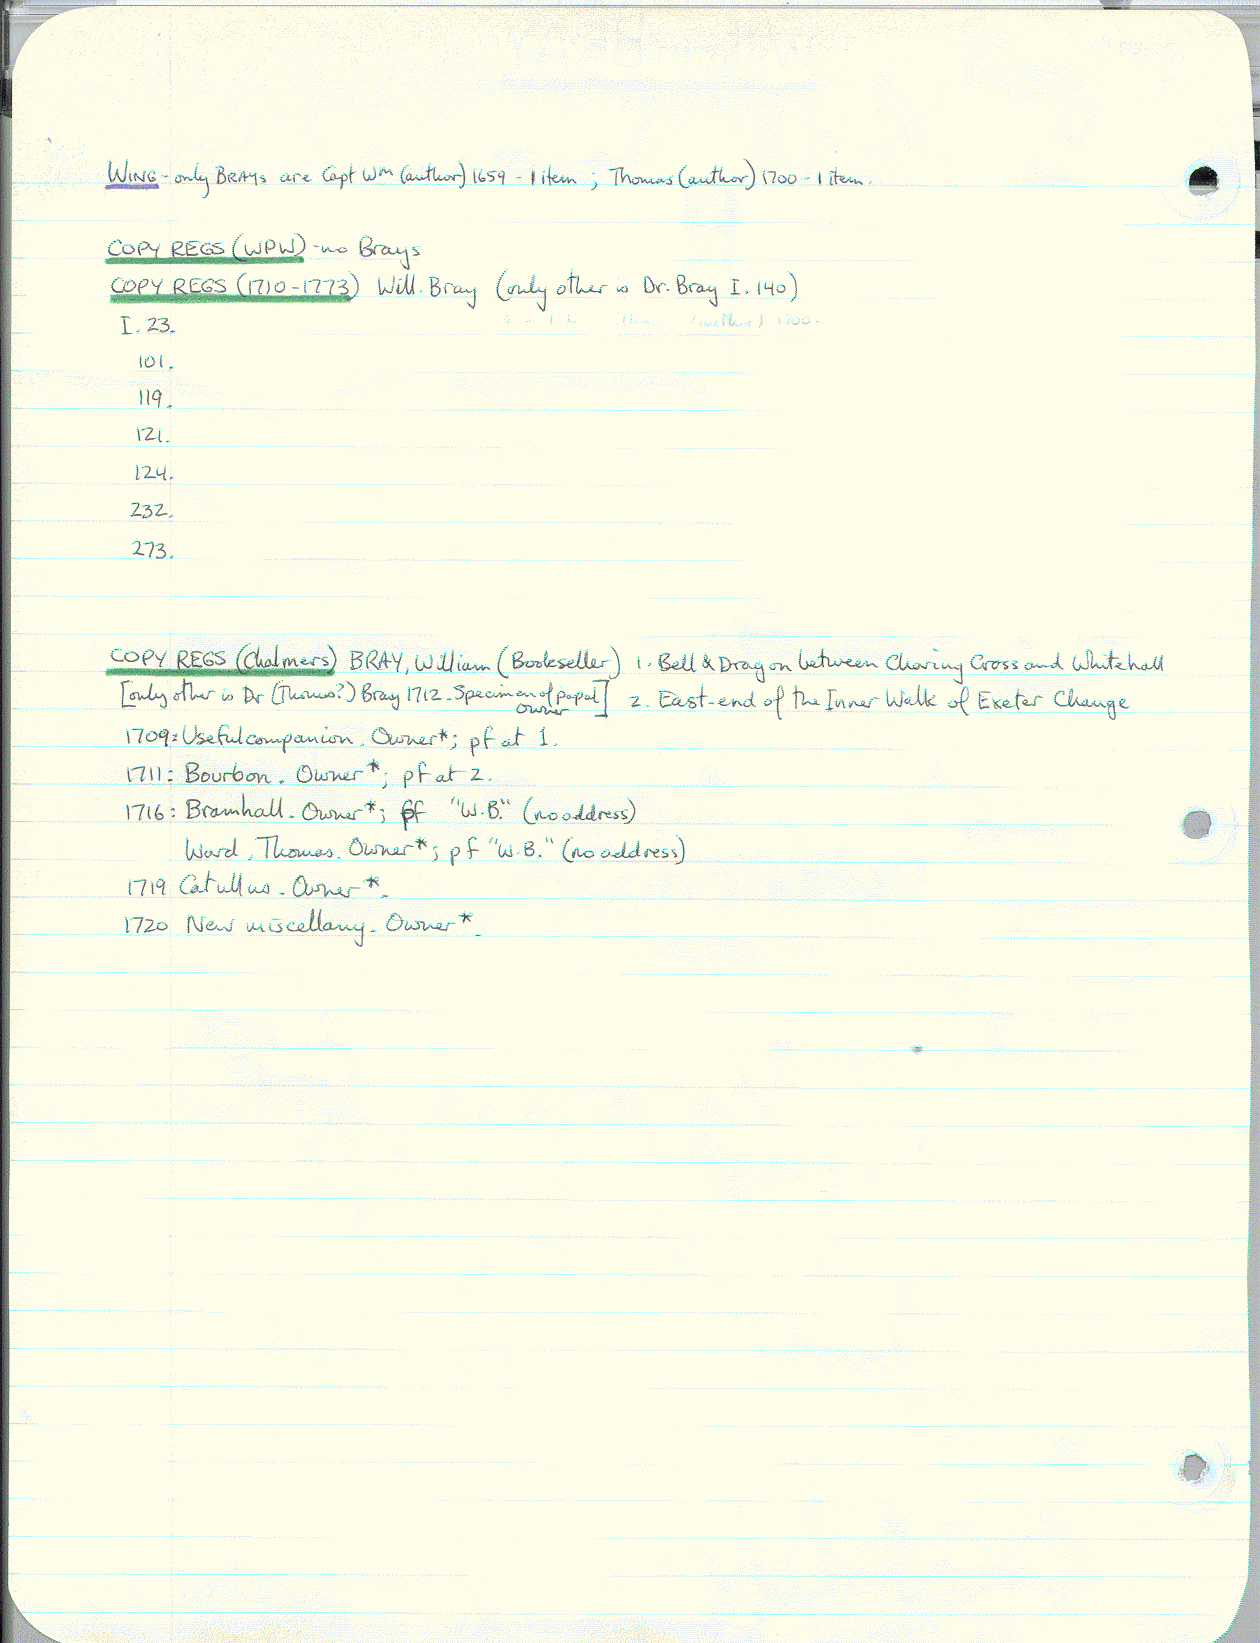 WING - only BRAYs are Capt Wm (author) 1659 - 1 item ; Thomas (author) 1700 - 1 item.
COPY REGS (WPW) - no Brays
COPY REGS (1710-1773) Will. Bray (only other is Dr. Bray I. 140)
I. 23.
101.
119.
121.
124.
232.
273.
COPY REGS (Chalmers) BRAY, William (Bookseller) 1. Bell & Dragon between Charing Cross and Whitehall
[only other is Dr (Thomas?) Bray 1712 - Specimen of popal] 2. East-end of the Inner Walk of Exeter Change
owner
1709: Useful companion. Owner*; pf at 1.
1711: Bourbon. Owner*; pf at 2.
1716: Bramhall. Owner*; pf "W.B." (no address)
Ward, Thomas. Owner*; pf "W.B." (no address)
1719 Catullus. Owner*.
1720 New miscellany. Owner*.